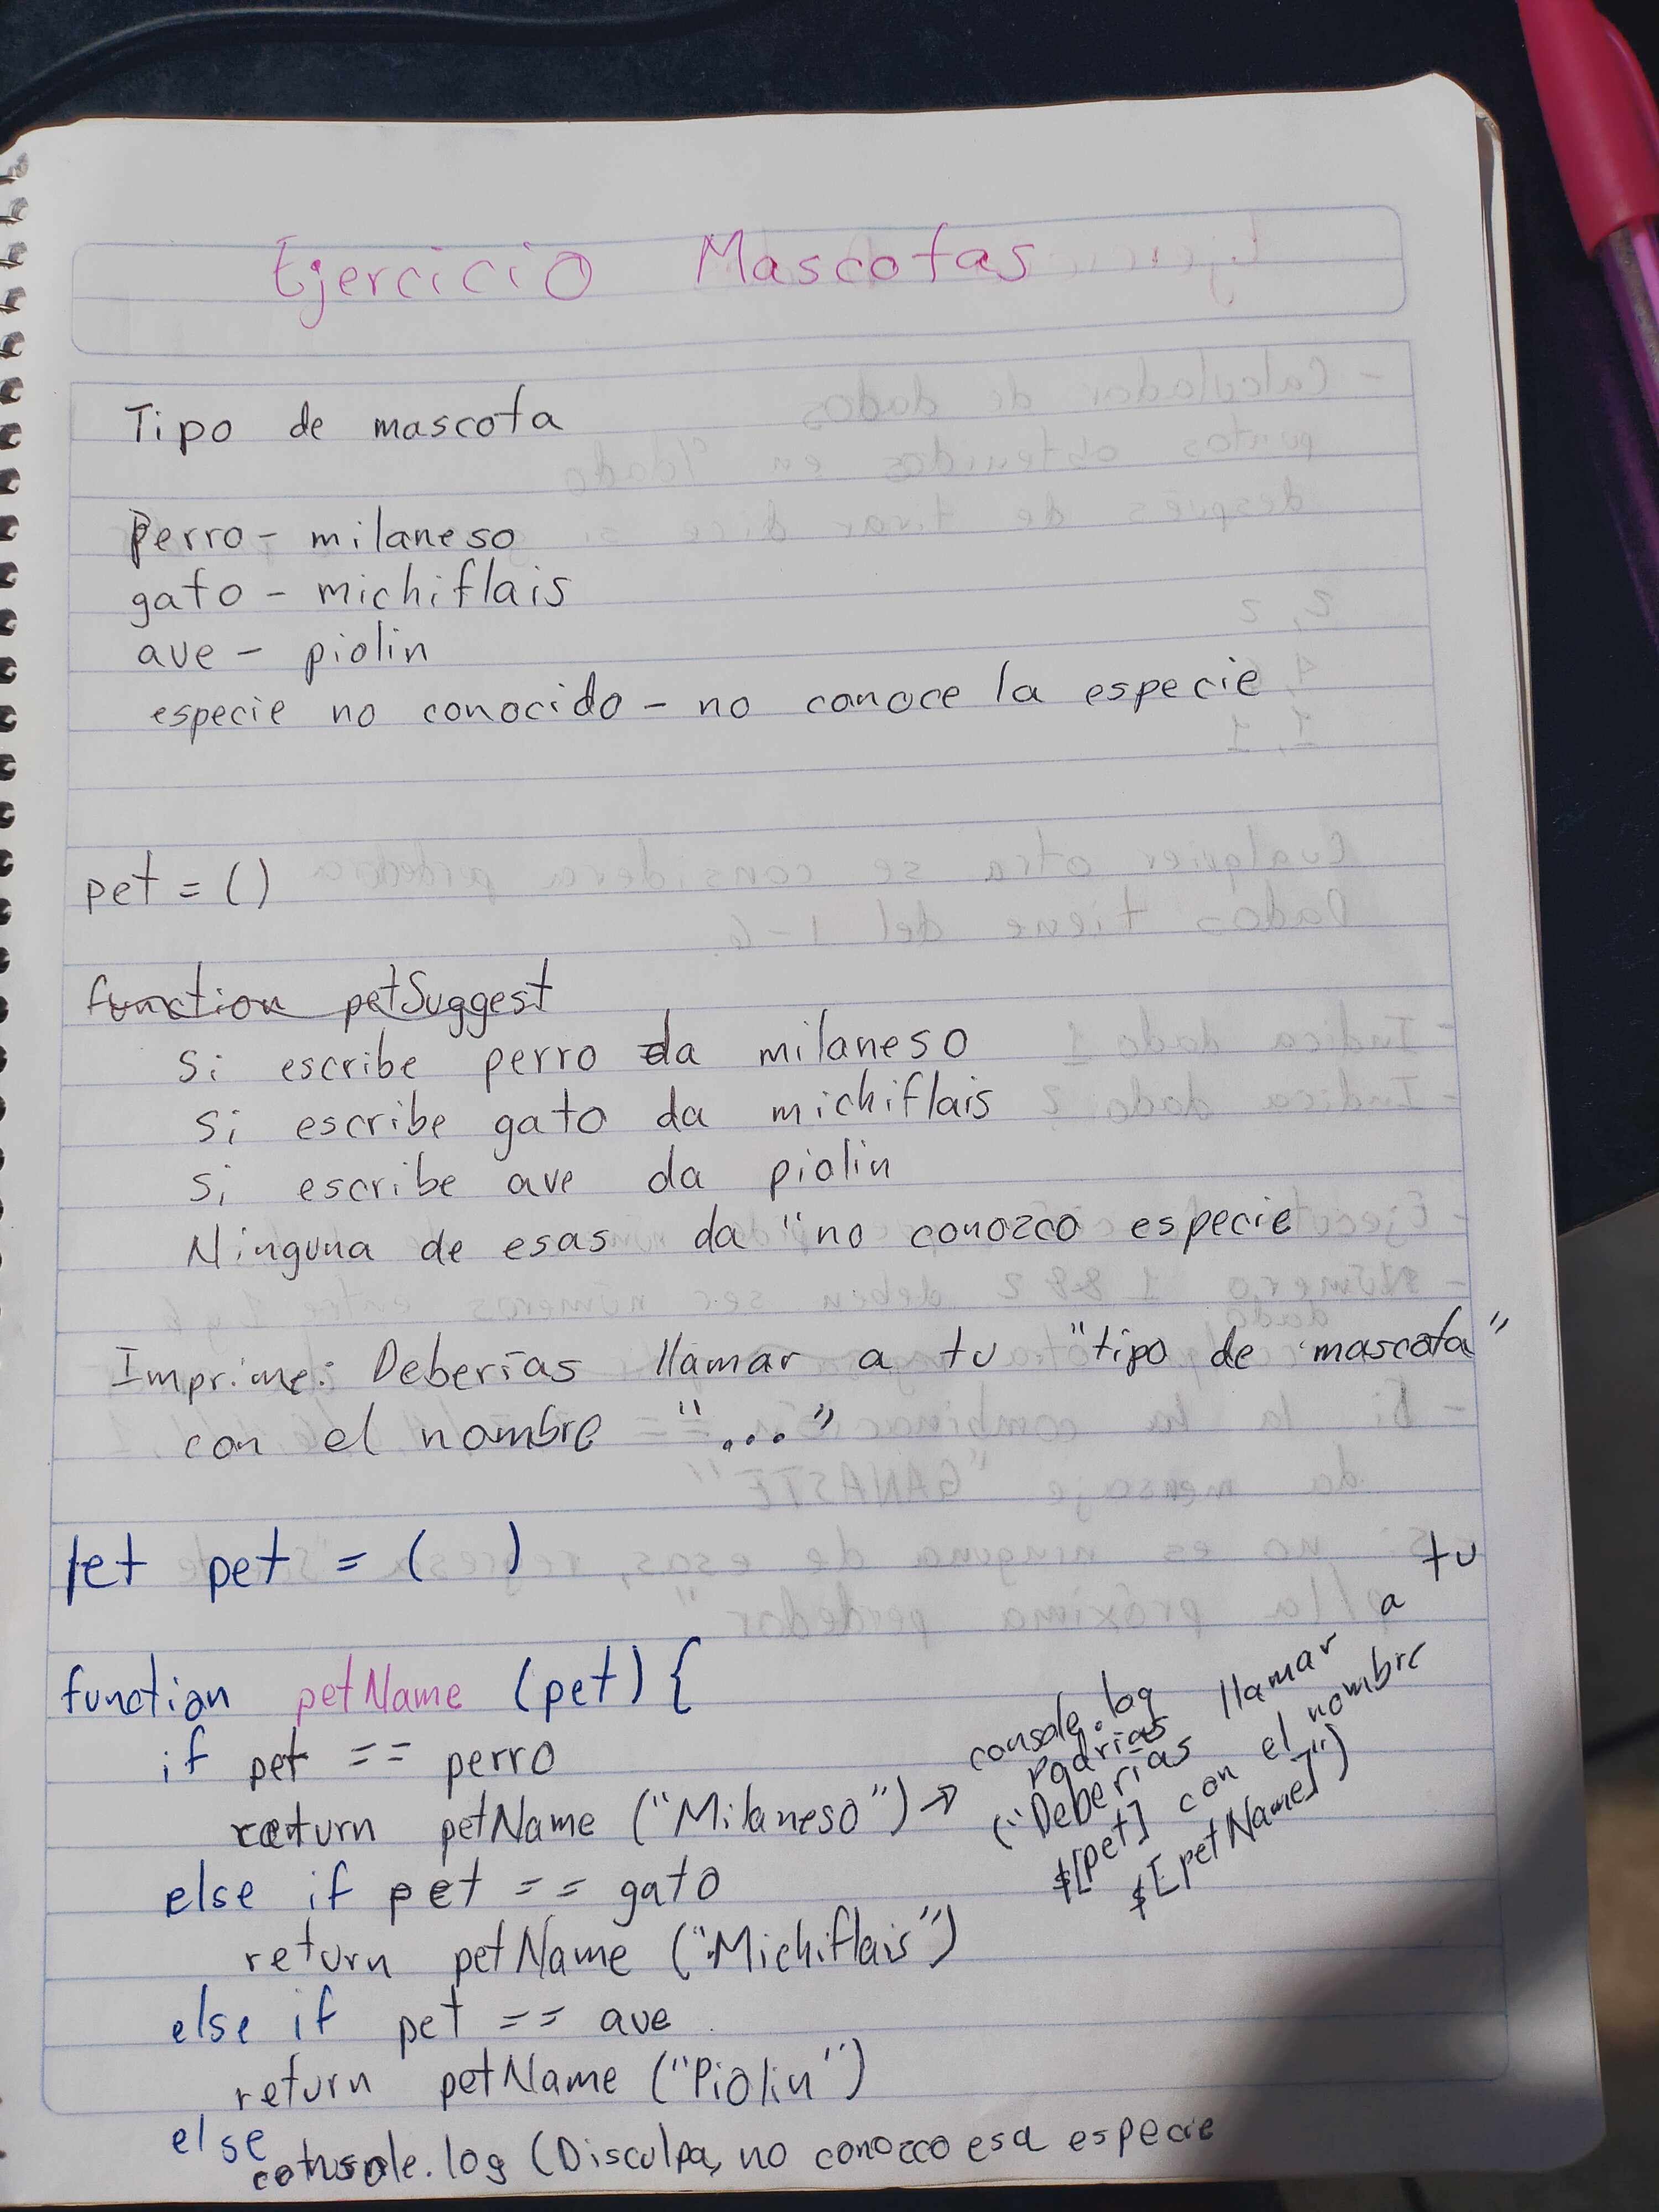 Ejercicio Mascotas
Tipo de mascota
Perro - milaneso
gato - michiflais
ave - piolin
especie no conocido - no conoce la especie
pet = ()
function petSuggest
Si escribe perro da milaneso
Si escribe gato da michiflais
Si escribe ave da piolin
Ninguna de esas da "no conozco especie
Imprime: Deberías llamar a tu "tipo de mascota"
con el nombre "..."
let pet = ( )
function petName (pet) {
if pet == perro
return petName ("Milaneso") →
console.log
Podrías
("Deberías llamar a tu
$[pet] con el nombre
$[petName]")
else if pet == gato
return petName ("Michiflais")
else if pet == ave
return petName ("Piolin")
else
console.log (Disculpa, no conozco esa especie